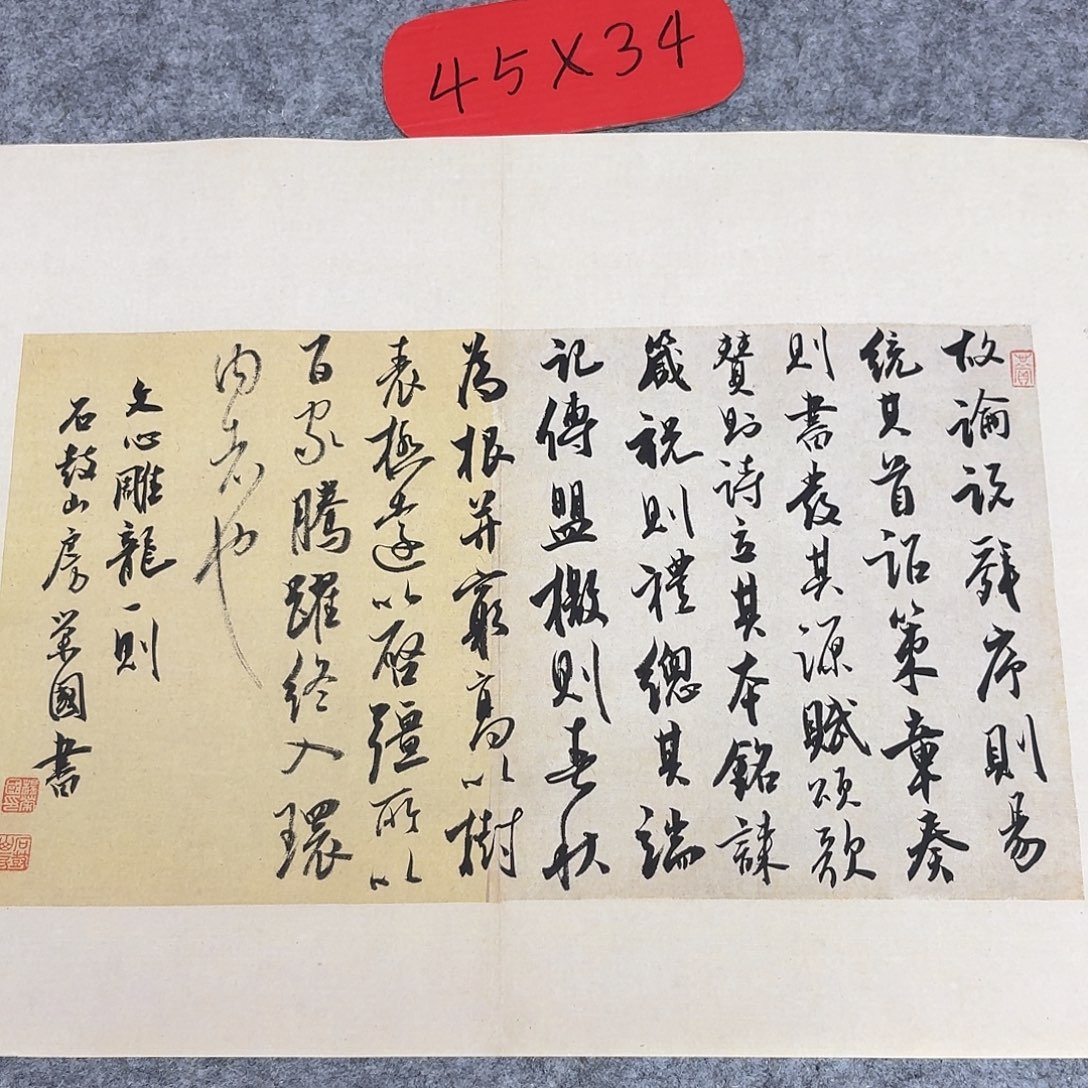 45×34
故論說辭序則易
統其首詔策章奏
則書發其源賦頌歌
贊則詩立其本銘誄
箴祝則禮總其端
記傳盟檄則春秋
為根并窮高以樹
表極遠以啓疆所以
百家騰躍終入環
内者也
文心雕龍一則
石鼓山房榮國書